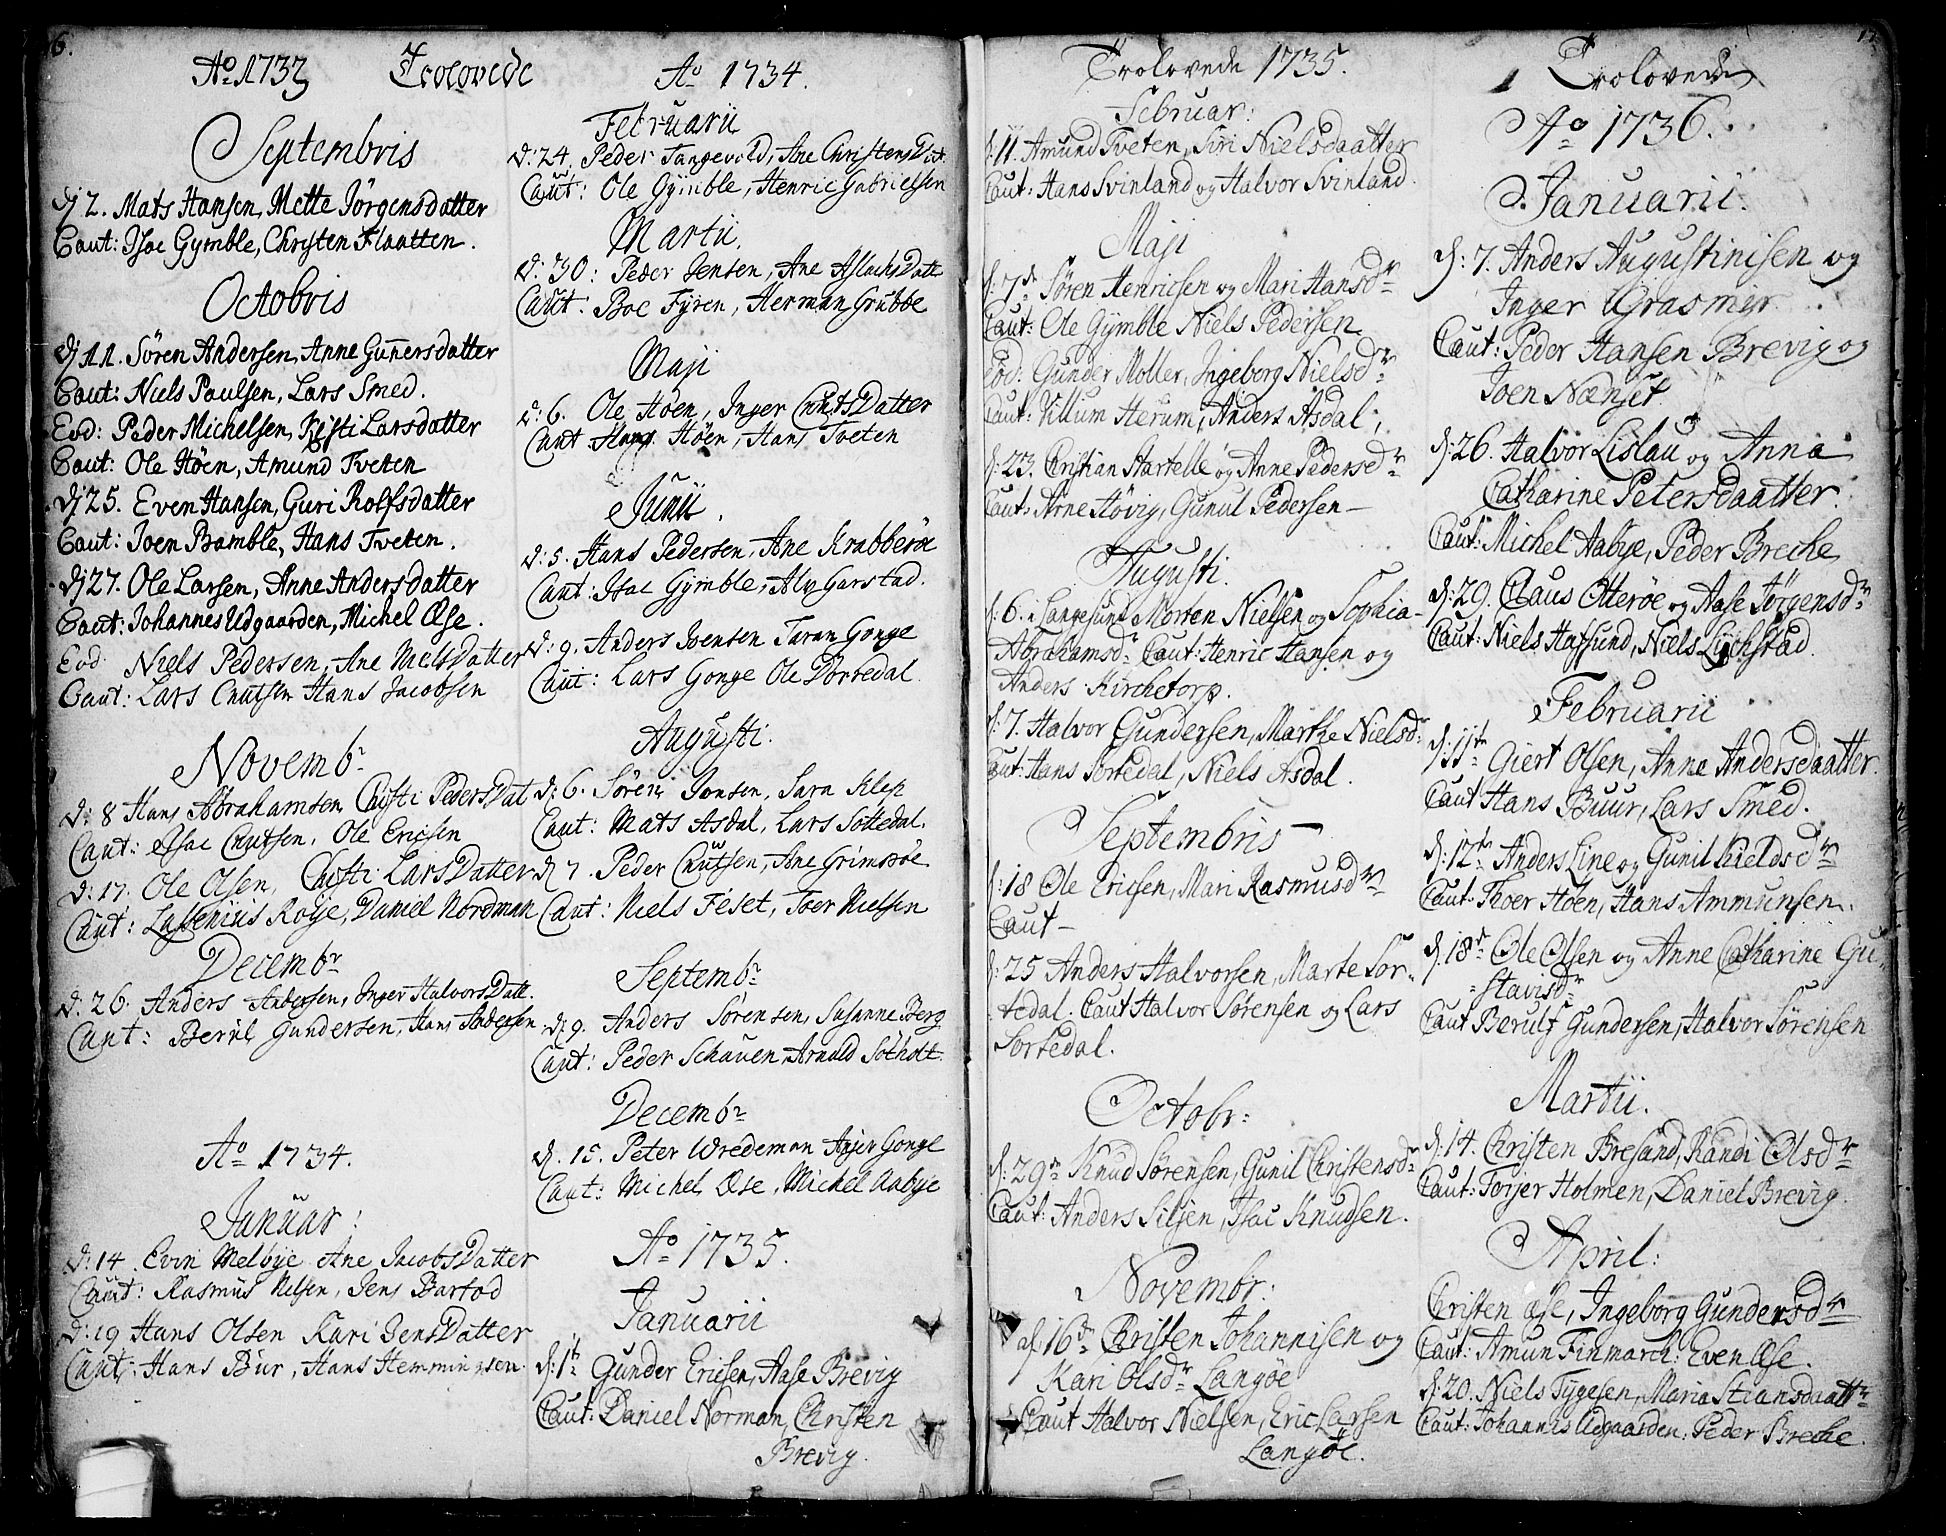 6.
Ao 1733 Trolovede
Septembris
dj 2. Mats Hansen, Mette Jörgensdatter
Caut: Isac Gymble, Christen Flaatten.
Octobris
dj 11. Sören Andersen, Anne Gunnersdatter
Caut: Niels Paulsen, Lars Smed.
Eod: Peder Michelsen, Kisti Larsdatter
Caut: Ole Höen, Amund Tveten
dj 25. Even Hansen, Guri Rolfsdatter
Caut: Joen Bamble, Hans Tveten.
dj 27. Ole Larsen, Anne Andersdatter
Caut: Johannes Udgaarden, Michel Œse.
Eod Niels Pedersen, Ane NielsDatter
Caut: Lars Cnutsen Hans Jacobsen
Novembr
d: 8 Hans Abrahamsen Chisti PedersDat
Caut: Isac Cnutsen, Ole Ericsen
d: 17. Ole Olsen, Chisti LarsDatter
Caut: Lassenius Roye, Daniel Nordman
Decembr
d. 26. Anders Andersen, Inger HalvorsDatt.
Caut: Berul Gundersen, Hans Andersen
Ao 1734.
Januar:
d: 14. Evin Melbye Ane JacobsDatter
Caut: Rasmus Nelsen, Jens Bartod
d: 19 Hans Olsen Kari JensDatter
Caut: Hans Bur, Hans Hemmingsen.
Ao 1734.
Februarii
d: 24. Peder Tangevold, Ane ChristensDat.
Caut: Ole Gÿmble, Henric Gabrielsen
Martii.
d: 30: Peder Jensen, Ane AslachsDatt
Caut. Boe Fyren, Herman Grubbe
Maji
d: 6. Ole Höen, Inger CnutsDatter
Caut Hans Höen, Hans Tveten
Junii.
d: 5. Hans Pedersen, Ane Krabberöe
Caut: Isac Gymble, Alv Garstad.
d: 9. Anders Ivensen Taran Gonge
Caut: Lars Gonge Ole Dorredal.
Augusti.
d: 6. Sören Jonsen, Sara Klep
Caut: Mats Asdal, Lars Sottedal.
d 7. Peder Cnutsen, Ane Grimsöe
Caut: Niels Feset, Toer Nielsen
Septembr
d: 9. Anders Sörensen, Susanne Berg
Caut: Peder Schauen, Arnold Sotholt.
Decembr
d. 15. Peter Wredeman Asjer Gonge
Caut: Michel Œse, Michel Aabye
Ao 1735.
Januarii
d: 1te Gunder Ericsen, Aase Brevig
Caut: Daniel Norman, Christen
Brevig.
Trolovede 1735.
Februar:
d: 11. Amund Tveten, Siri Nielsdaatter
Caut: Hans Svinland og Halvor Svinland.
Maji
d: 7de Sören Henricsen og Mari Hansdr
Caut: Ole Gÿmble Niels Pedersen
Eod: Gunder Moller, Ingeborg Nielsdr
Caut: Villum Herum, Anders Asdal,
d: 23. Christian Hartelle og Anne Pedersdr
Caut: Arne Hövig, Gunul Pedersen —
Augusti.
d: 6. i Langesund Morten Nielsen og Sophia
Abrahamsdr Caut: Henric Hansen og
Anders Kirchetorp.
d: 7. Halvor Gundersen, Marthe Nielsdr
Caut: Hans Sortedal, Niels Asdal.
Septembris
d: 18 Ole Ericsen, Mari Rasmusdr
Caut —
d: 25 Anders Halvorsen, Marte Sor-
tedal. Caut Halvor Sörensen og Lars
Sortedal.
Octobr:
d: 29n Knud Sörensen, Gunil Christensdr
Caut: Anders Siljen, Isac Knudsen.
Novembr:
d: 16de Christen Johannisen og
Kari Olsdr Langöe
Caut Halvor Nielsen, Eric Larsen
Langöe.
17
Trolovede
Ao 1736.
Januarii.
d: 7. Anders Augustinisen og
Inger Grasmyr.
Caut: Peder Hansen Brevig og
Joen Nænset
d: 26. Halvor Lislau og Anna
Catharine Petersdaatter.
Caut: Michel Aabye, Peder Breche
d: 29. Claus Otteröe og Aase Jörgensdr
Caut: Niels Hassund, Niels Lychstad.
Februarii
d: 11te Giert Olsen, Anne Andersdaatter
Caut Hans Buur, Lars Smed.
d: 12te Anders Line og Gunil Kieldsdr
Caut: Thoer Höen, Hans Ammunsen.
d. 18de Ole Olsen og Anne Catharine Gu-
stavsdr
Caut Berulf Gundersen, Halvor Sörensen
Martii.
d. 14. Christen Bresand, Randi Olsdr
Caut: Torjer Holmen, Daniel Brevig.
April:
Christen Œse, Ingeborg Gundersdr
Caut: Amun Finmarch: Even Œse.
d: 20. Niels Tygesen, Maria Stiansdaattr
Caut: Johannes Udgaarden: Peder Breche.